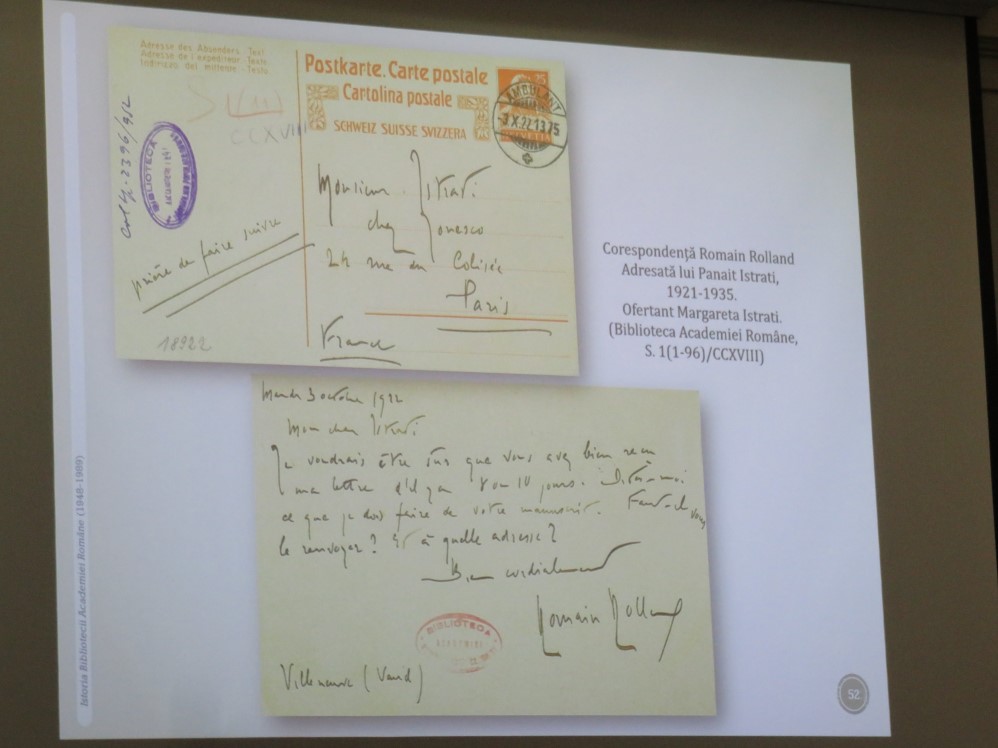 Adresse des Absenders. Text
Adresse de l'expéditeur. Texte
Indirizzo del mittente. - Testo
Postkarte. Carte postale
Cartolina postale
SCHWEIZ SUISSE SVIZZERA
25
HELVETIA
AMBULANT
3.X.22.13
75
CCXVIII
BIBLIOTECA
prière de faire suivre
18922
Monsieur Istrati
chez Ionesco
24 rue du Colisée
Paris
France
Corespondență Romain Rolland
Adresată lui Panait Istrati,
1921-1935.
Ofertant Margareta Istrati.
(Biblioteca Academiei Române,
S. 1(1-96)/CCXVIII)
Mardi 3 octobre 1922
Mon cher Istrati
Je voudrais être sûr que vous avez bien reçu
ma lettre d'il y a 8 ou 10 jours. Dites-moi
ce que je dois faire de votre manuscrit. Faut-il vous
le renvoyer? Et à quelle adresse?
Bien cordialement
Romain Rolland
BIBLIOTECA
Villeneuve (Vaud)
Istoria Bibliotecii Academiei Române (1948-1989)
52